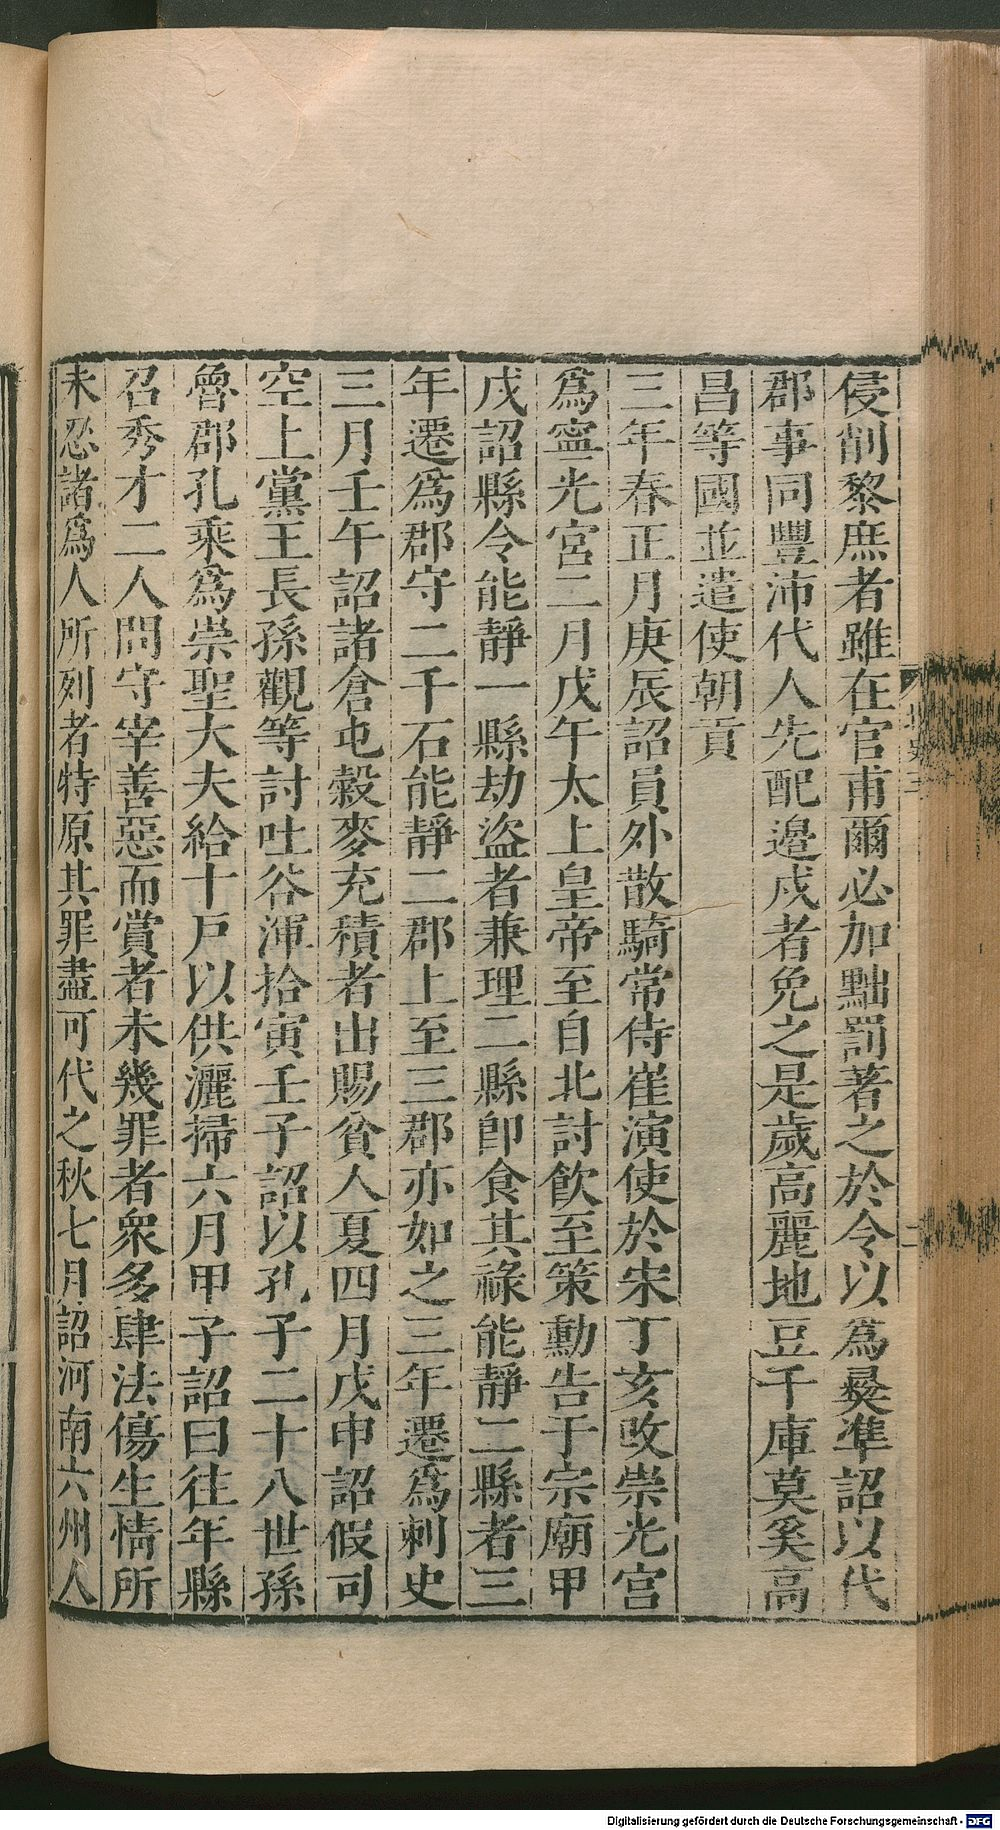 侵削黎庶者雖在官甫爾必加黜罰著之於令以為彝準詔以代
郡事同豐沛代人先配邊戍者免之是歲高麗地豆千庫莫奚高
昌等國並遣使朝貢
三年春正月庚辰詔員外散騎常侍崔演使於宋丁亥改崇光宮
爲寧光宮二月戊午太上皇帝至自北討飲至策勳告于宗廟甲
戌詔縣令能靜一縣劫盜者兼理二縣卽食其祿能靜二縣者三
年遷爲郡守二千石能靜二郡上至三郡亦如之三年遷爲刺史
三月壬午詔諸倉屯穀麥充積者出賜貧人夏四月戊申詔假司
空上黨王長孫觀等討吐谷渾拾寅壬子詔以孔子二十八世孫
魯郡孔乘爲崇聖大夫給十戶以供灑掃六月甲子詔曰往年縣
召秀才二人問守宰善惡而賞者未幾罪者衆多肆法傷生情所
未忍諸爲人所列者特原其罪盡可代之秋七月詔河南六州人
Digitalisierung gefördert durch die Deutsche Forschungsgemeinschaft - DFG